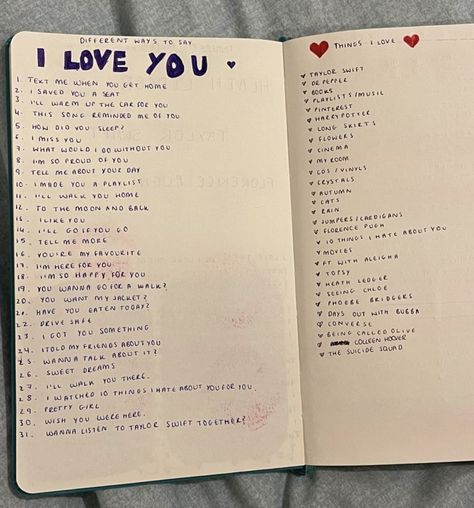 DIFFERENT WAYS TO SAY
I LOVE YOU
1. TEXT ME WHEN YOU GET HOME
2. I SAVED YOU A SEAT
3. I'LL WARM UP THE CAR FOR YOU
4. THIS SONG REMINDED ME OF YOU
5. HOW DID YOU SLEEP?
6. I MISS YOU
7. WHAT WOULD I DO WITHOUT YOU
8. I'M SO PROUD OF YOU
9. TELL ME ABOUT YOUR DAY
10. I MADE YOU A PLAYLIST
11. I'LL WALK YOU HOME
12. TO THE MOON AND BACK
13. I LIKE YOU
14. I'LL GO IF YOU GO
15. TELL ME MORE
16. YOU'RE MY FAVOURITE
17. I'M HERE FOR YOU
18. I'M SO HAPPY FOR YOU
19. YOU WANNA GO FOR A WALK?
20. YOU WANT MY JACKET?
21. HAVE YOU EATEN TODAY?
22. DRIVE SAFE
23. I GOT YOU SOMETHING
24. I TOLD MY FRIENDS ABOUT YOU
25. WANNA TALK ABOUT IT?
26. SWEET DREAMS
27. I'LL WALK YOU THERE.
28. I WATCHED 10 THINGS I HATE ABOUT YOU FOR YOU.
29. PRETTY GIRL
30. WISH YOU WERE HERE.
31. WANNA LISTEN TO TAYLOR SWIFT TOGETHER?
THINGS I LOVE
TAYLOR SWIFT
DR PEPPER
BOOKS
PLAYLISTS/MUSIC
PINTEREST
HARRY POTTER
LONG SKIRTS
FLOWERS
CINEMA
MY ROOM
CDS/VINYLS
CRYSTALS
AUTUMN
CATS
RAIN
JUMPERS/CARDIGANS
FLORENCE PUGH
10 THINGS I HATE ABOUT YOU
MOVIES
FT WITH ALEIGHA
TOPSY
HEATH LEDGER
SEEING CHLOE
PHOEBE BRIDGERS
DAYS OUT WITH BUBBA
CONVERSE
BEING CALLED OLIVE
COLLEEN HOOVER
THE SUICIDE SQUAD